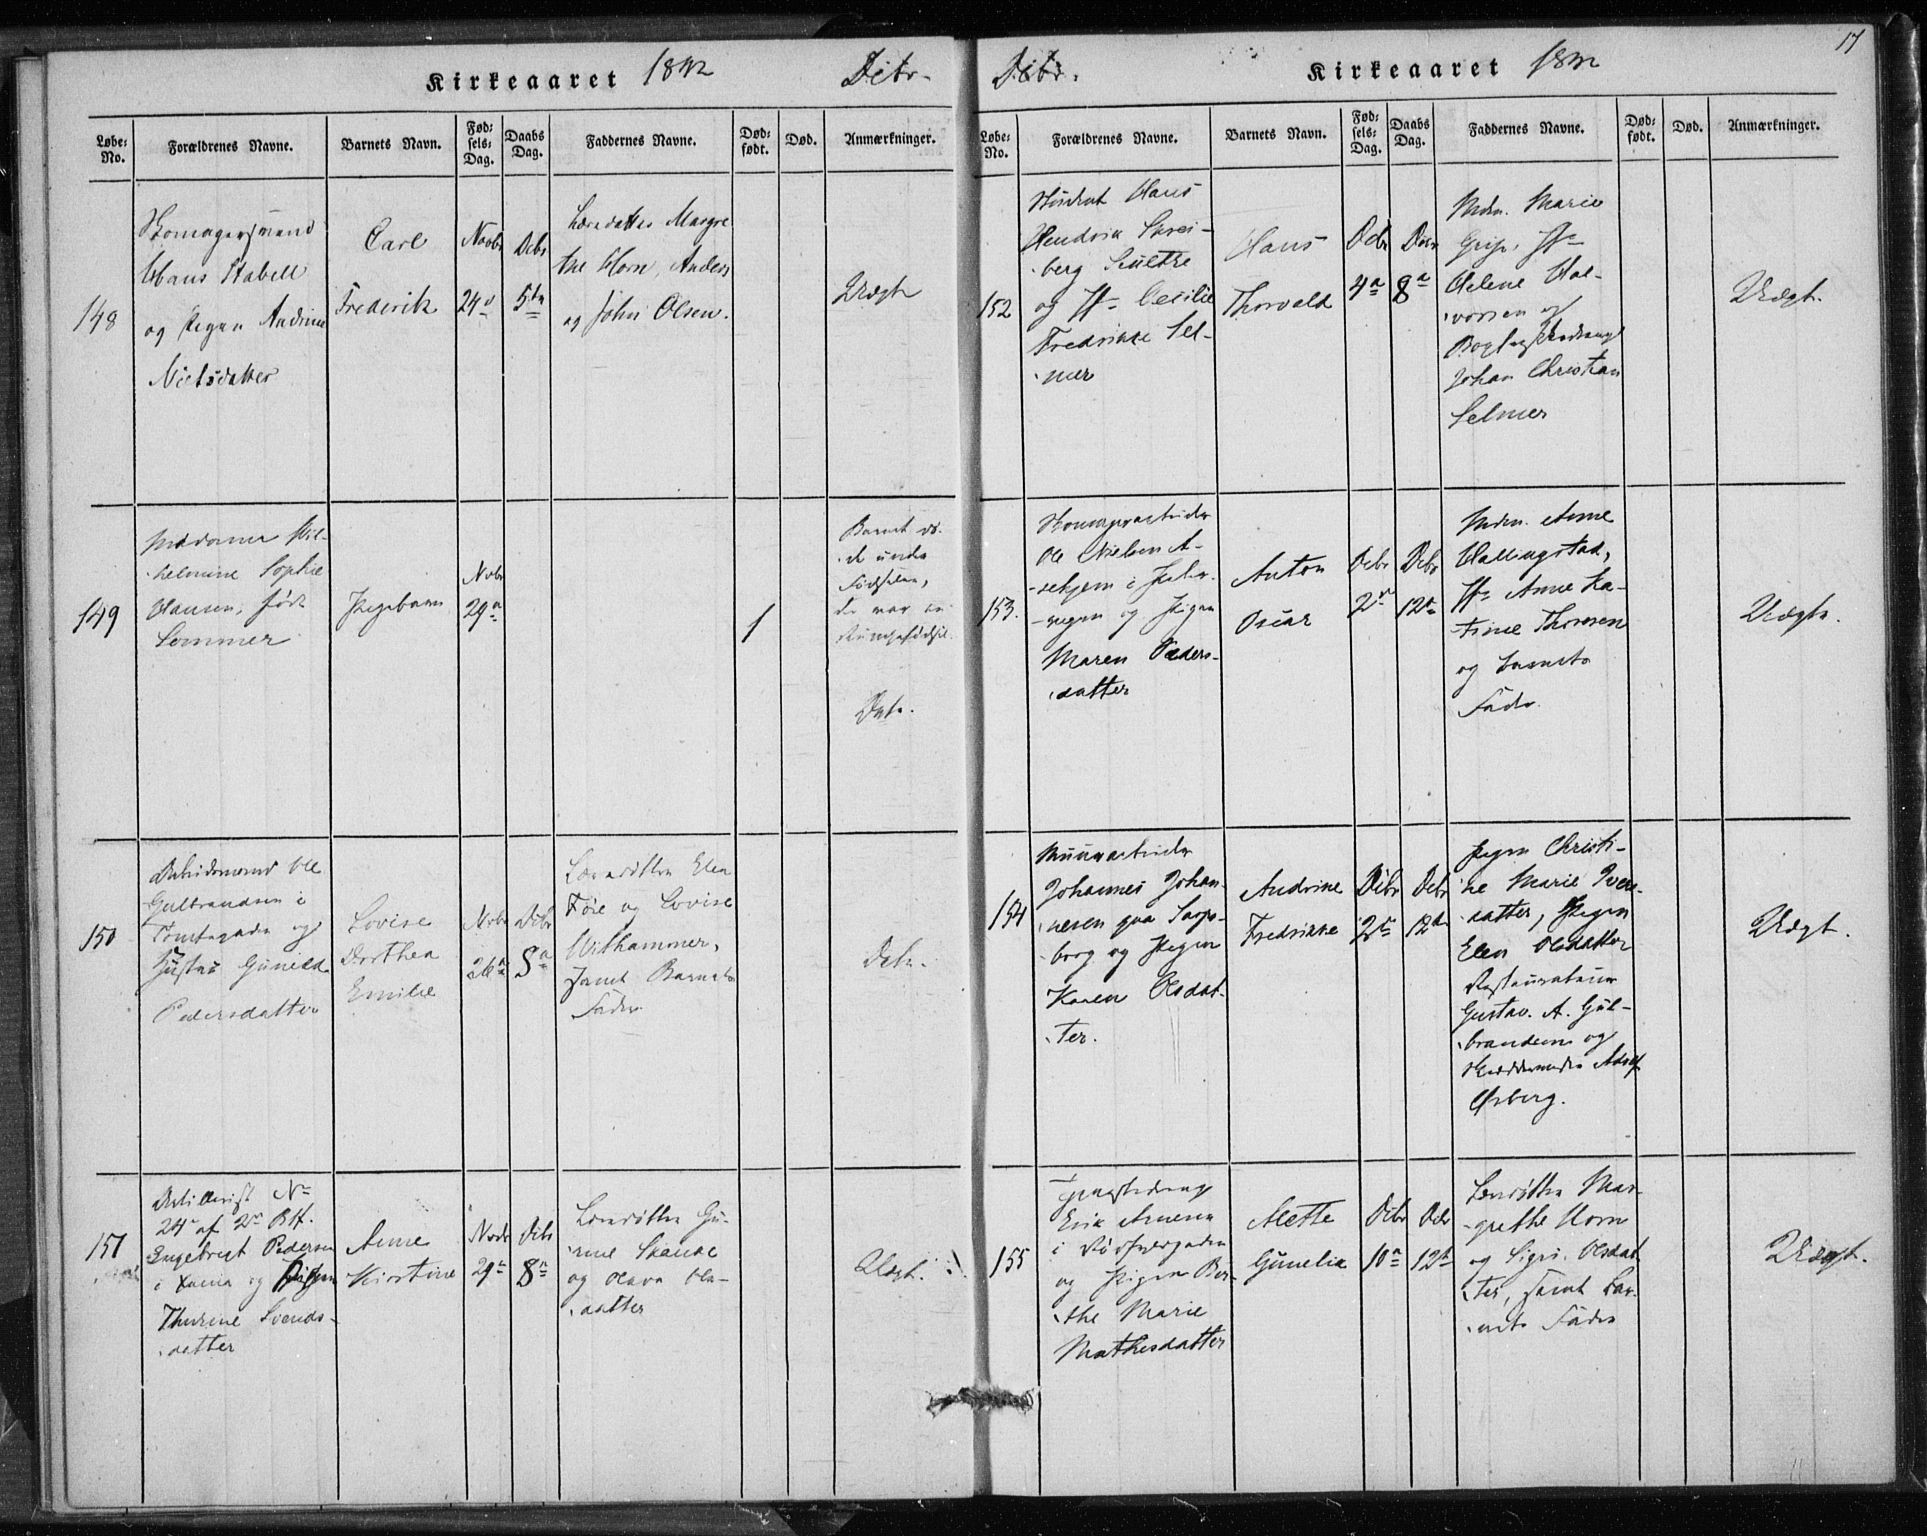 Kirkeaaret 1842 Debr.
Løbe-No. Forældrenes Navne. Barnets Navn. Fød-sels-Dag. Daabs Dag. Faddernes Navne. Død-født. Død. Anmærkninger.
148
Skomagersvend
Hans Stabell
og Pigen Andrine
Nielsdatter
Carl
Frederik
Novbr
24d
Debr
5te
Margre
the Horn, Anders
og John Olsen.
Uægt
149
Madame Wil-
helmine Sophie
Hansen, født
Sommer
Pigebarn
Novbr
29n
1
Barnet dø-
de under
Fødselen,
Dito.
150
Arbeidsmand Ole
Gulbrandsen i
Tomtegaden og
Hustru Gunild
Pedersdatter
Lovise
Dorthea
Emilie
Novbr
26n
Debr
8n
Elen
og Lovise
Withammer,
samt Barnets
Fader
Dito.
151
Artillerist No
24 af 2n Btt.
Engebregt Pedersen
og Pigen
Thurine Svends-
datter
Anne
Kirstine
Novbr
29n
Debr
8n
Gu-
nne Skause
og Olava Ols-
datter
Uægt.
Debr. Kirkeaaret 1842
17
Løbe-No. Forældrenes Navne. Barnets Navn. Fød-sels-Dag. Daabs Dag. Faddernes Navne. Død-født. Død. Anmærkninger.
152
Student Hans
Hendrik Skrei-
berg Schultze
og Jfr Cecilie
Fredrikke Sel-
mer
Hans
Thorvald
Debr
4n
Debr
8n
Mdm. Marie
Grip, Jfr
Helene Hal-
vorsen og
Johan Christian
Selmer
Uægt.
153.
Ole Nielsen A-
og Pigen
Maren Peders-
datter
Anton
Oscar
Debr
2n
Debr
12te
Mdm. Anne
Hallingstad,
Jfr Anne Ka-
trine Thoresen
og Barnets
Fader
Uægte.
154
Muurarbeider
Johannes Johan-
nesen paa Sarps-
borg og Pigen
Karen Olsdat-
ter.
Andrine
Fredrikke
Debr
2n
Debr
12te
Pigen Christi-
ne Marie Ivers-
datter, Pigen
Elen Olsdatter
Restaurateur
Gustav. A. Gul-
brandsen og
Adolf
Osberg.
Uægt.
155
Erik Arnesen
i Rødfyldgaden
og Pigen Ber-
the Marie
Mathisdatter
Mette
Gunelia
Debr
10n
Debr
12te
Mar-
grethe Horn
og Sigri Olsdat-
ter, samt Bar-
nets Fader
Uægt.